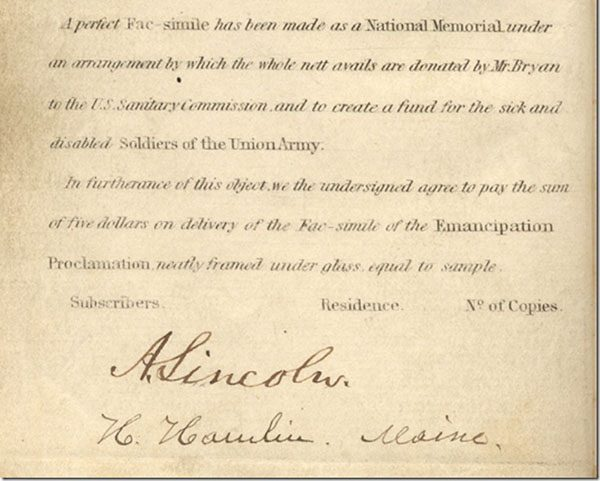 A perfect Fac-simile has been made as a National Memorial under
an arrangement by which the whole nett avails are donated by Mr. Bryan
to the U.S. Sanitary Commission, and to create a fund for the sick and
disabled Soldiers of the Union Army.
In furtherance of this object, we the undersigned agree to pay the sum
of five dollars on delivery of the Fac-simile of the Emancipation
Proclamation, neatly framed under glass, equal to sample.
Subscribers. Residence. No of Copies.
A. Lincoln.
H. Hamlin. Maine.